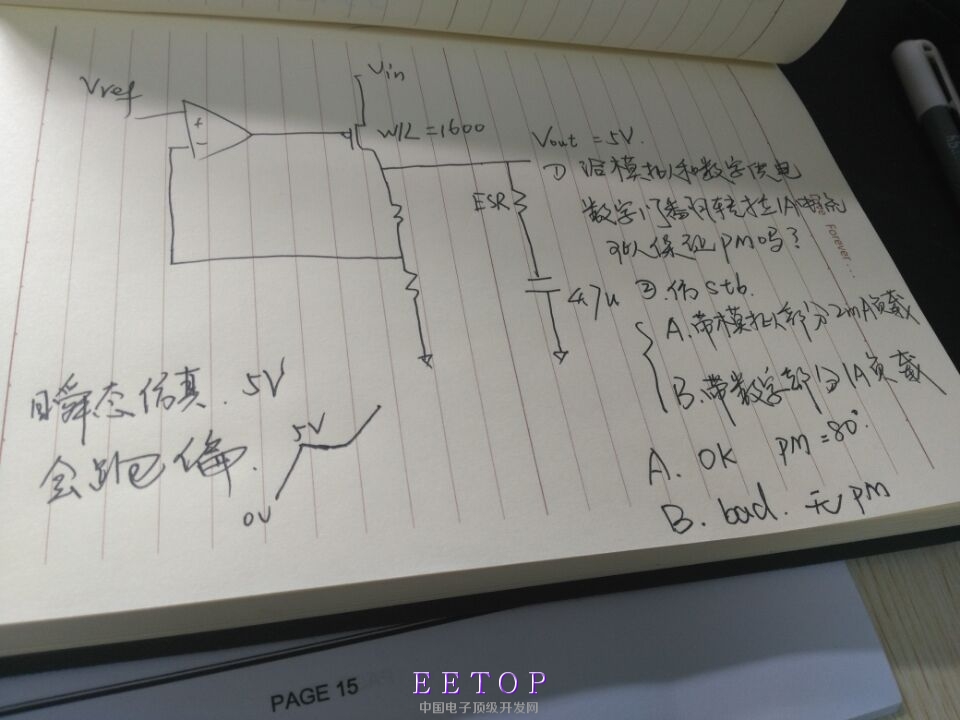 Vref
Vin
+
-
W/L = 1600
Vout = 5V.
① 给模拟和数字供电
数字I/O翻转拉1A电流
可以保证PM吗?
Forever...
ESR
4.7u
② 仿stb.
A. 带模拟部分2mA负载
B. 带数字部分1A负载
瞬态仿真. 5V
会跑偏.
5V
0V
A. OK PM = 80°.
B. bad. 无PM
PAGE 15
EETOP
中国电子顶级开发网